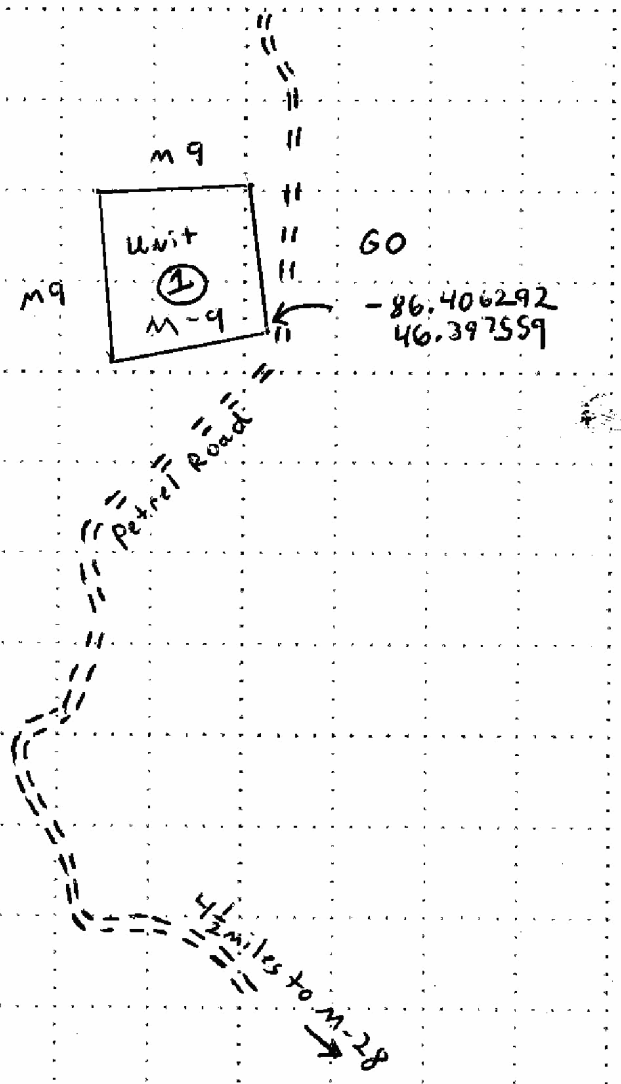 M 9
Unit
1
M-9
M9
GO
-86.406292
46.397559
Petrel Road
4 1/2 miles to M-28